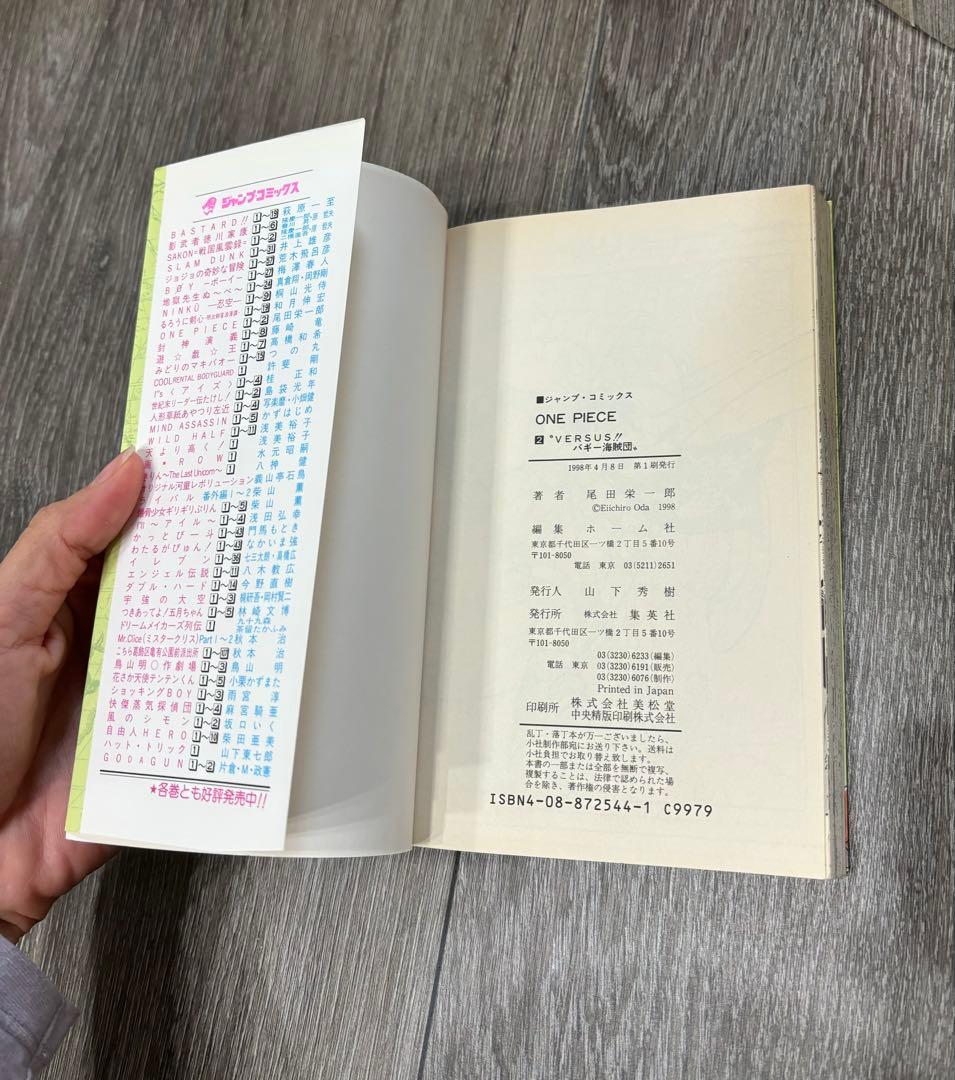 ジャンプ・コミックス
BASTARD!! 萩原一至
影武者徳川家康
SAKON=戦国風雲録=
SLAM DUNK 井上雄彦
ジョジョの奇妙な冒険 荒木飛呂彦
BØY ーボーイー 梅澤春人
地獄先生ぬ〜べ〜 真倉翔・岡野剛
NINKŪ ―忍空― 桐山光侍
るろうに剣心 和月伸宏
ONE PIECE 1〜2 尾田栄一郎
封神演義 藤崎竜
遊☆戯☆王 1〜7 高橋和希
みどりのマキバオー つの丸
COOL RENTAL BODYGUARD 1 許斐剛
I"s〈アイズ〉 1〜4 桂正和
世紀末リーダー伝たけし! 1〜2 島袋光年
人形草紙あやつり左近 1〜4 写楽麿・小畑健
MIND ASSASSIN 1〜5 かずはじめ
WILD HALF 浅美裕子
天より高く! 1 浅美裕子
ROW 1 水元昭嗣
りん〜The Last Unicorn〜 1 八神健
リジナル河童レボリューション 義山亭石鳥
イバル 番外編1〜2 柴山薫
骨少女ギリギリぷりん 1〜5 柴山薫
I'll 〜アイル〜 浅田弘幸
かっとび一斗 門馬もとき
わたるがぴゅん! なかいま強
イレブン 七三太朗・高橋広
エンジェル伝説 1〜11 八木教広
ダブル・ハード 1〜14 今野直樹
宇強の大空 1〜3 梶研吾・岡村賢二
つきあってよ!五月ちゃん 1〜5 林崎文博
ドリームメイカーズ列伝 1 九十九森 茶留たかふみ
Mr.Clice(ミスタークリス) Part1〜2 秋本治
こちら葛飾区亀有公園前派出所 秋本治
鳥山明○作劇場 1〜3 鳥山明
花さか天使テンテンくん 1〜5 小栗かずまた
ショッキングBOY 1〜3 雨宮淳
快傑蒸気探偵団 1〜4 麻宮騎亜
風のシモン 1〜2 坂口いく
自由人HERO 1〜10 柴田亜美
ハット・トリック 1 山下東七郎
GODAGUN 1〜2 片倉・M・政憲
★各巻とも好評発売中!!
■ジャンプ・コミックス
ONE PIECE
2 "VERSUS!! バギー海賊団"
1998年4月8日 第1刷発行
著者 尾田栄一郎
©Eiichiro Oda 1998
編集 ホーム社
東京都千代田区一ツ橋2丁目5番10号
〒101-8050
電話 東京 03(5211)2651
発行人 山下秀樹
発行所 株式会社 集英社
東京都千代田区一ツ橋2丁目5番10号
〒101-8050
03(3230)6233(編集)
電話 東京 03(3230)6191(販売)
03(3230)6076(制作)
Printed in Japan
印刷所 株式会社美松堂
中央精版印刷株式会社
乱丁・落丁本が万一ございましたら、
小社制作部宛にお送り下さい。送料は
小社負担でお取り替え致します。
本書の一部または全部を無断で複写、
複製することは、法律で認められた場
合を除き、著作権の侵害となります。
ISBN4-08-872544-1 C9979